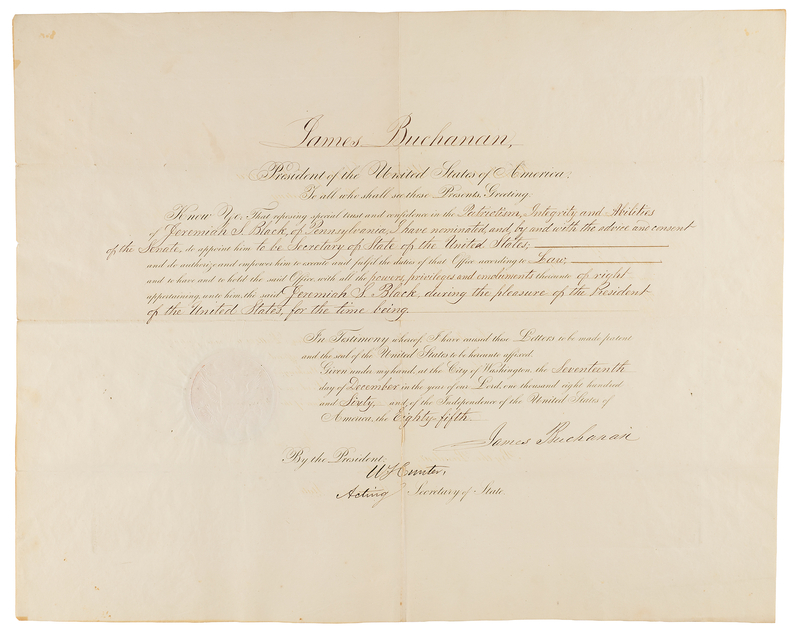 James Buchanan,
President of the United States of America:
To all who shall see these Presents, Greeting:
Know Ye, That reposing special trust and confidence in the Patriotism, Integrity and Abilities
of Jeremiah S. Black, of Pennsylvania, I have nominated, and, by and with the advice and consent
of the Senate, do appoint him to be Secretary of State of the United States;
and do authorize and empower him to execute and fulfil the duties of that Office according to Law;
and to have and to hold the said Office, with all the powers, privileges and emoluments thereunto of right
appertaining, unto him, the said Jeremiah S. Black, during the pleasure of the President
of the United States, for the time being.
In Testimony whereof, I have caused these Letters to be made patent
and the seal of the United States to be hereunto affixed.
Given under my hand, at the City of Washington, the Seventeenth
day of December in the year of our Lord, one thousand eight hundred
and Sixty, and of the Independence of the United States of
America, the Eighty-fifth.
James Buchanan
By the President:
W Hunter,
Acting Secretary of State.